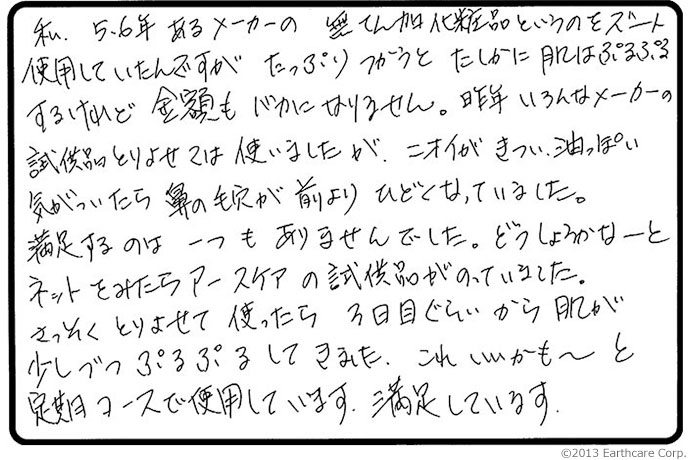 私、5、6年 あるメーカーの 無てん加化粧品というのをズート
使用していたんですが たっぷり つかうと たしかに 肌はぷるぷる
するけれど 金額も バカになりません。昨年 いろんなメーカーの
試供品とりよせては 使いましたが、ニオイがきつい、油っぽい
気がついたら 鼻の毛穴が 前より ひどくなっていました。
満足するのは 一つも ありませんでした。どうしようかなーと
ネットをみたらアースケアの試供品がのっていました。
さっそく とりよせて 使ったら 3日目ぐらいから 肌が
少しづつ ぷるぷるしてきました。これ いいかも〜 と
定期コースで使用しています。満足しています。
©2013 Earthcare Corp.